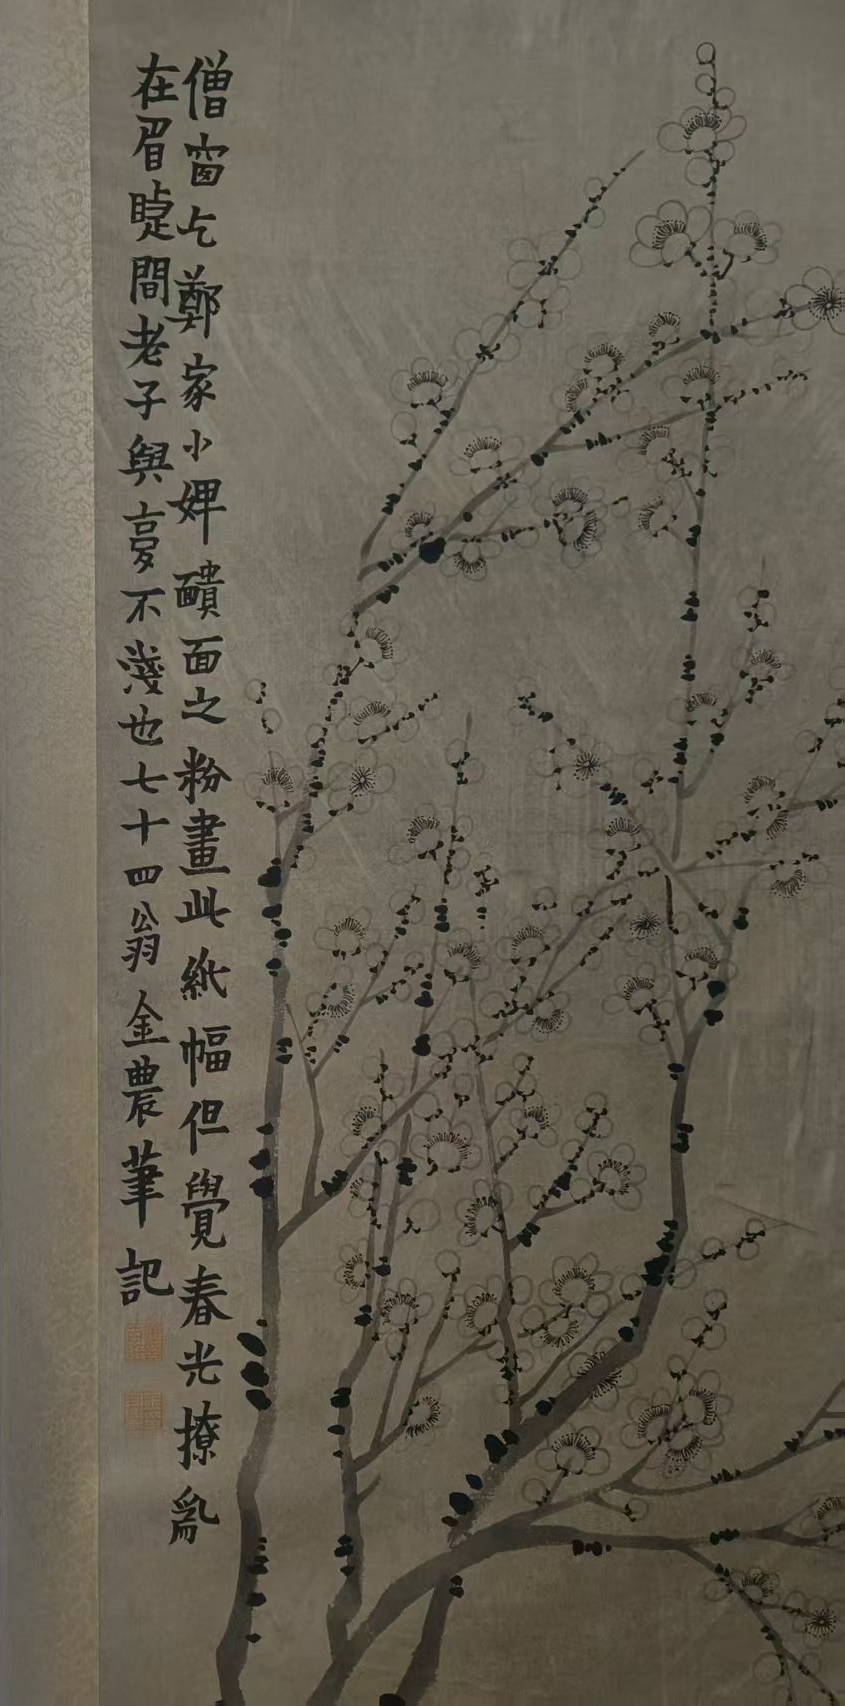 僧窗乞鄭家小婢靧面之粉畫此紙幅但覺春光撩亂
在眉睫間老子與㝱不淺也七十四翁金農筆記